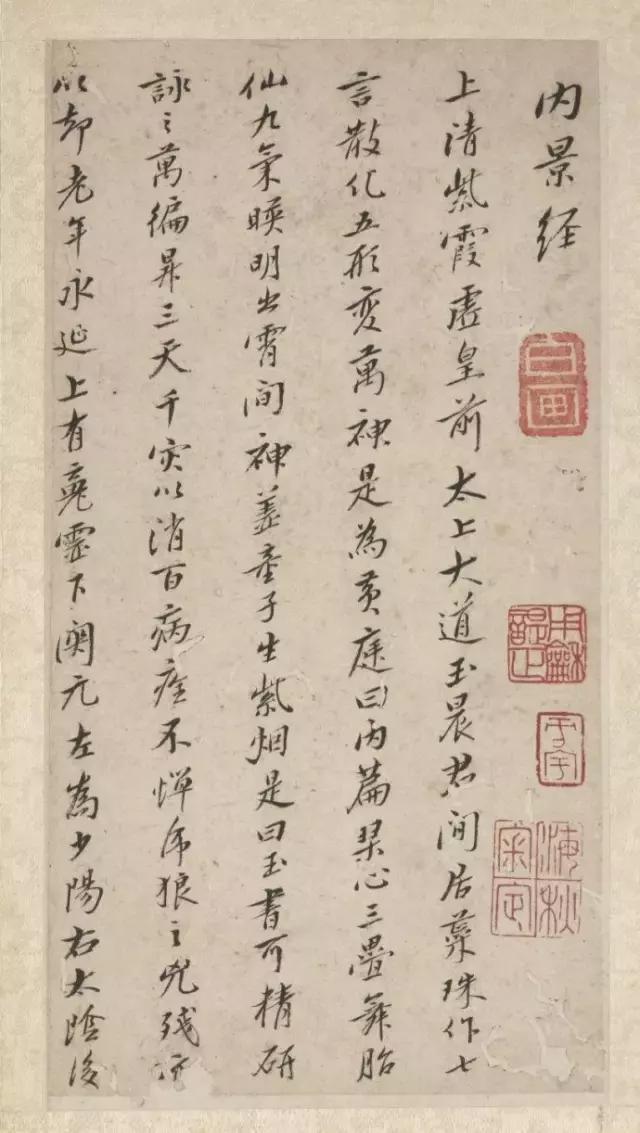 内景经
上清紫霞虚皇前太上大道玉晨君閒居蘂珠作七
言散化五形变萬神是為黄庭曰内篇琹心三疊舞胎
仙九氣暎明出霄间神盖童子生紫烟是曰玉書可精研
詠之萬徧昇三天千灾以消百病痊不惮虎狼之兇残亦
以却老年永延上有䰟靈下関元左為少陽右太陰後